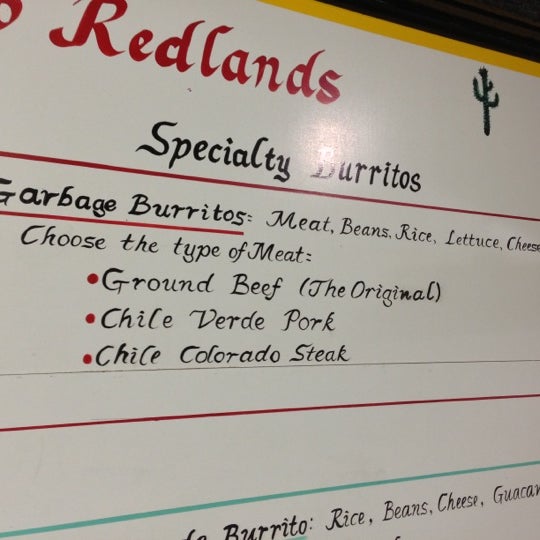 Redlands
Specialty Burritos
Garbage Burritos: Meat, Beans, Rice, Lettuce, Cheese
Choose the type of Meat:
• Ground Beef (The Original)
• Chile Verde Pork
• Chile Colorado Steak
Burrito: Rice, Beans, Cheese,